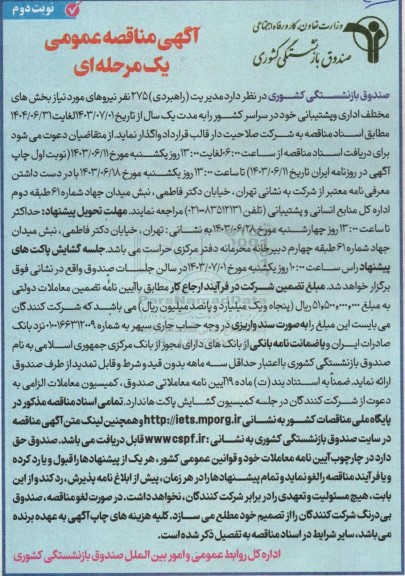 نوبت دوم
وزارت تعاون، کار و رفاه اجتماعی
صندوق بازنشستگی کشوری
آگهی مناقصه عمومی
یک مرحله ای
صندوق بازنشستگی کشوری در نظر دارد مدیریت (راهبردی) ۲۷۵ نفر نیروهای مورد نیاز بخش های
مختلف اداری و پشتیبانی خود در سراسر کشور را به مدت یک سال از تاریخ ۱۴۰۳/۰۷/۰۱ لغایت ۱۴۰۴/۰۶/۳۱
مطابق اسناد مناقصه به شرکت صلاحیت دار قالب قرارداد واگذار نماید. از متقاضیان دعوت می شود
برای دریافت اسناد مناقصه از ساعت ۰۶:۰۰ لغایت ۱۳:۰۰ روز یکشنبه مورخ ۱۴۰۳/۰۶/۱۱ (نوبت اول چاپ
آگهی در روزنامه ایران تاریخ ۱۴۰۳/۰۶/۱۱) تا ساعت ۱۳:۰۰ روز یکشنبه مورخ ۱۴۰۳/۰۶/۱۸ با در دست داشتن
معرفی نامه معتبر از شرکت به نشانی تهران، خیابان دکتر فاطمی، نبش میدان جهاد شماره ۶۱ طبقه دوم
اداره کل منابع انسانی و پشتیبانی (تلفن ۸۳۵۱۲۱۳۱-۰۲۱) مراجعه نمایند. مهلت تحویل پیشنهاد: حداکثر
تا ساعت ۱۳:۰۰ روز چهارشنبه مورخ ۱۴۰۳/۰۶/۲۸ به نشانی: تهران، خیابان دکتر فاطمی، نبش میدان
جهاد شماره ۶۱ طبقه چهارم دبیرخانه محرمانه دفتر مرکزی حراست می باشد. جلسه گشایش پاکت های
پیشنهاد راس ساعت ۱۰:۰۰ روز یکشنبه مورخ ۱۴۰۳/۰۷/۰۱ در سالن جلسات صندوق واقع در نشانی فوق
برگزار خواهد شد. مبلغ تضمین شرکت در فرآیند ارجاع کار مطابق با آیین نامه تضمین معاملات دولتی
به مبلغ ۵۱،۵۰۰،۰۰۰،۰۰۰ ریال (پنجاه و یک میلیارد و پانصد میلیون ریال) می باشد که شرکت کنندگان
می بایست این مبلغ را به صورت سند واریزی در وجه حساب جاری سپهر به شماره ۰۱۰۰۶۶۳۱۲۰۰۹ نزد بانک
صادرات ایران و یا ضمانت نامه بانکی از بانک های دارای مجوز از بانک مرکزی جمهوری اسلامی به نام
صندوق بازنشستگی کشوری با اعتبار حداقل سه ماهه بدون قید و شرط و قابل تمدید از طرف صندوق
ارائه نماید. ضمناً به استناد بند (ت) ماده ۱۹ آیین نامه معاملاتی صندوق، کمیسیون معاملات الزامی به
دعوت از شرکت کنندگان در جلسه کمیسیون گشایش پاکت ها ندارد. تمامی اسناد مناقصه مذکور در
پایگاه ملی مناقصات کشور به نشانی http://iets.mporg.ir و همچنین لینک متن آگهی مناقصه
در سایت صندوق بازنشستگی کشوری به نشانی: www.cspf.ir قابل دریافت می باشد. صندوق حق
دارد در چارچوب آیین نامه معاملات خود و قوانین عمومی کشور، هر یک از پیشنهادها را قبول و یا رد کرده
و یا فرآیند مناقصه را لغو نماید و تمام پیشنهادها را در هر زمان، پیش از ابلاغ نامه پذیرش، رد کند و از این
بابت، هیچ مسئولیت و تعهدی را در برابر شرکت کنندگان، نخواهد داشت. در صورت لغو مناقصه، صندوق
بی درنگ شرکت کنندگان را از تصمیم خود مطلع می سازد. کلیه هزینه های چاپ آگهی به عهده برنده
می باشد، سایر شرایط در اسناد مناقصه به تفصیل ذکر شده است.
اداره کل روابط عمومی و امور بین الملل صندوق بازنشستگی کشوری